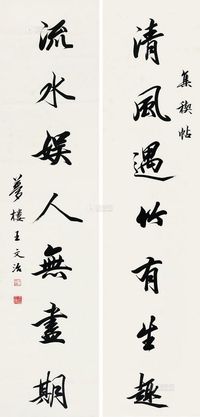 清風遇竹有生趣
集禊帖
流水娱人無盡期
夢樓王文治